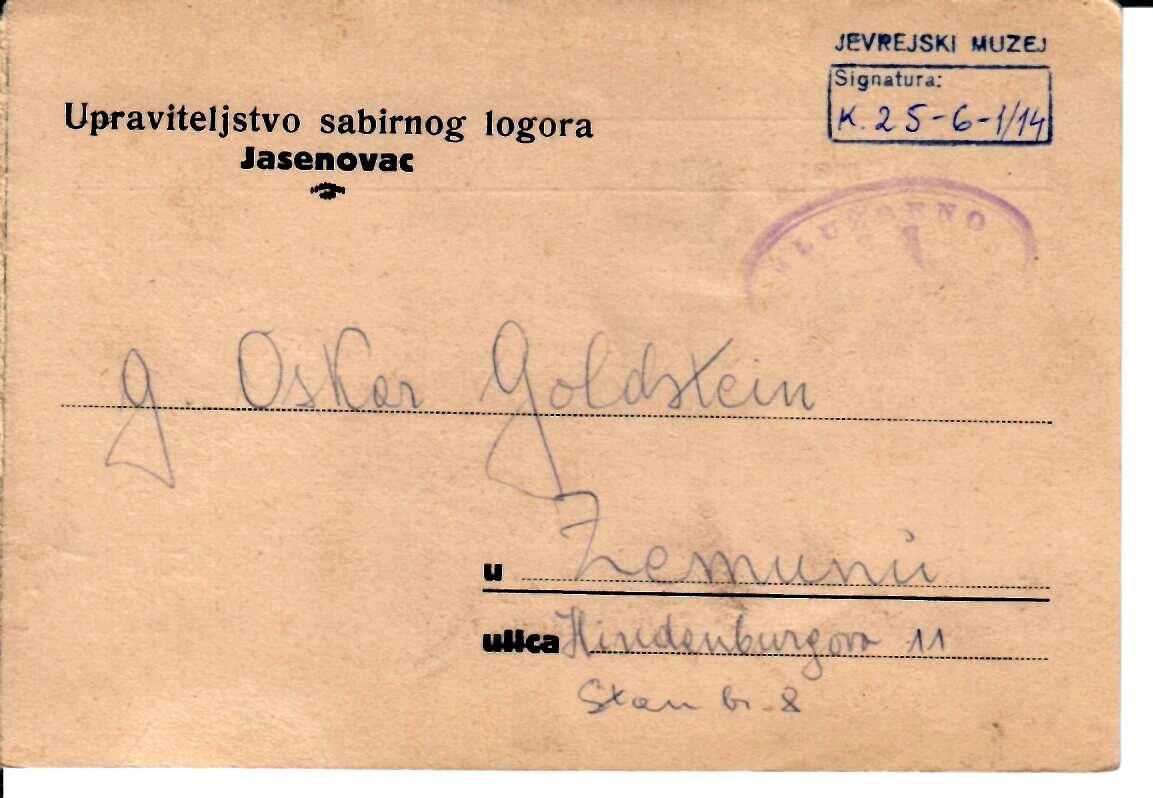 JEVREJSKI MUZEJ
Signatura:
K. 25-6-1/14
Upraviteljstvo sabirnog logora
Jasenovac
SLUŽBENO
g. Oskar Goldstein
u Zemunu
ulica Hindenburgova 11
Stan br. 8